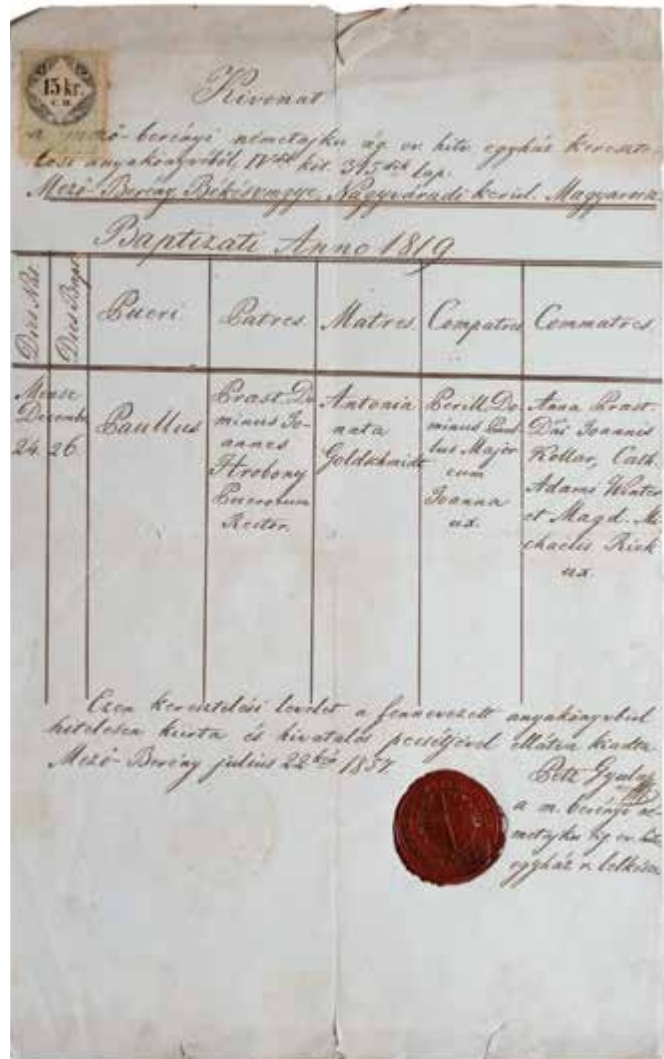 15 kr.
C.M.
Kivonat
a mező-berényi németajku ág. ev. hitv. egyház kereszte-
lési anyakönyvéből, IVdik köt. 315dik lap.
Mező-Berény Békésmegye, Nagyváradi kerül. Magyarorsz.
Baptizati Anno 1819.
Dies Nat.
Dies Bapt.
Pueri
Patres
Matres
Compatres
Commatres
Mense
Decembr.
24. 26.
Paullus
Prast. Do-
minus Jo-
annes
Hrobony
Puerorum
Rector.
Antonia
nata
Goldschmidt
Perill. Do-
minus Paul-
lus Major
cum
Joanna
ux.
Anna Prast.
Dni Joannis
Kollar, Cath.
Adami Winter
et Magd. Mi-
chaelis Rick
ux.
Ezen keresztelési levelet a fennevezett anyakönyvből
hitelesen kiirta és hivatalos pecsétjével ellátva kiadta
Mező-Berény július 22kén 1857.
Petz Gyula
a m. berényi né-
metajku ág. ev. hitv.
egyház r. lelkésze